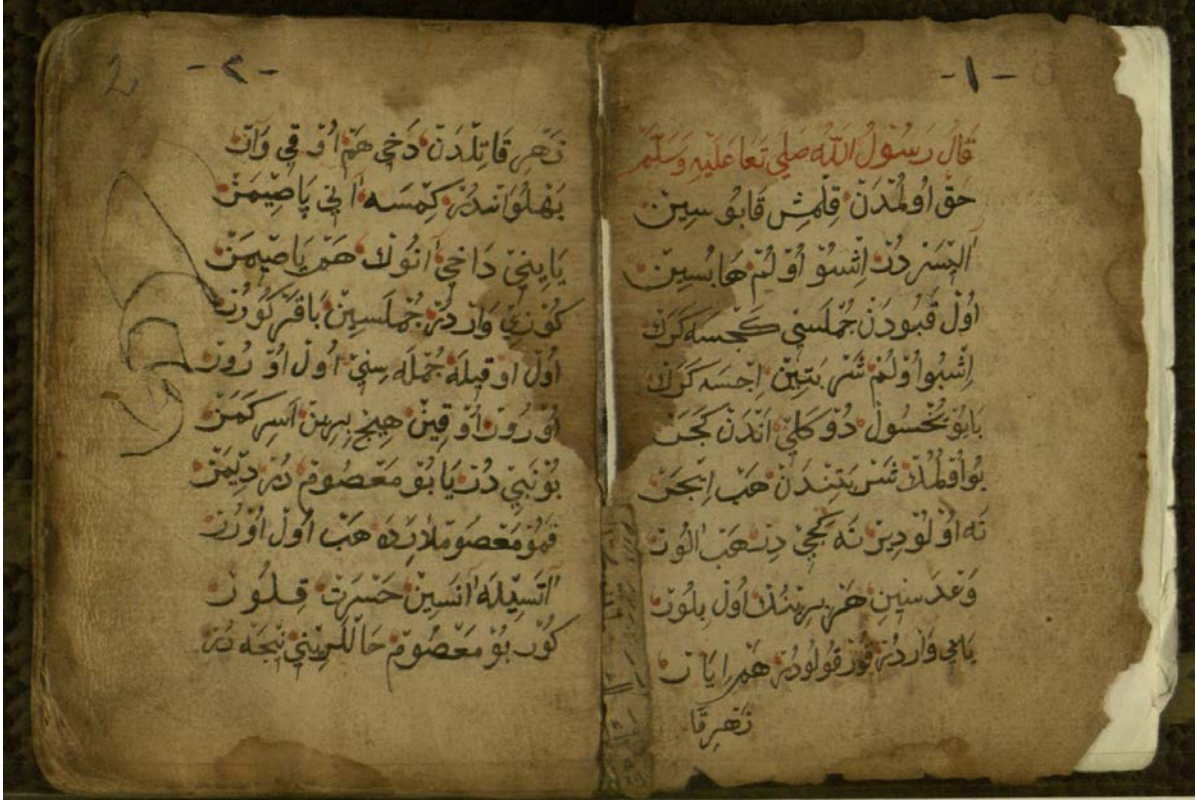 -١-
قال رسول الله صلي تعا عليه وسلم
حق اولمدن قلمش قابوسين
دُر اشبو اولم هابسين
اول قبودن جملسي كجسه كرك
اشبو اولم شربتين اجسه كرك
بايو يخسول دوكلي اندن كجر
بو اولمك شربتندن هب ايجر
نه اولو دير نه كجي در هب الور
وعدسين هر برينك اول بلور
يايي واردر قورقولودر هم ايار
زهر قا
-٢-
2
زهر قاتلدن دخي هم اوقي وار
بهلواندر كمسه اني ياصيمز
يايني داخي انوك هم ياصيمز
كوزي واردر جملسين باقر كورر
اول اوقيله جمله سني اول اورور
اورور اوقين هيج برين اسركمز
بو نبي در يا بو معصوم در ديمز
قمو معصوملارده هب اول اورر
اتسيله انسين حسرت قلور
كور بو معصوم حاللريني نيجه در